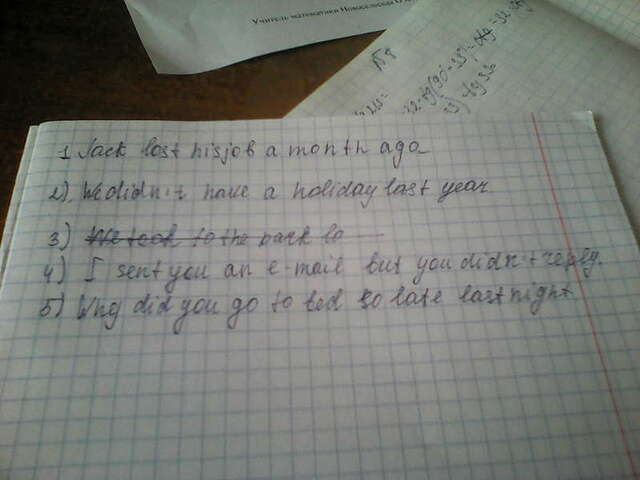 Учитель математики
№8
1 Jack lost his job a month ago
2) We didn't have a holiday last year
3) We took to the park lo
4) I sent you an e-mail but you didn't reply.
5) Why did you go to bed so late last night